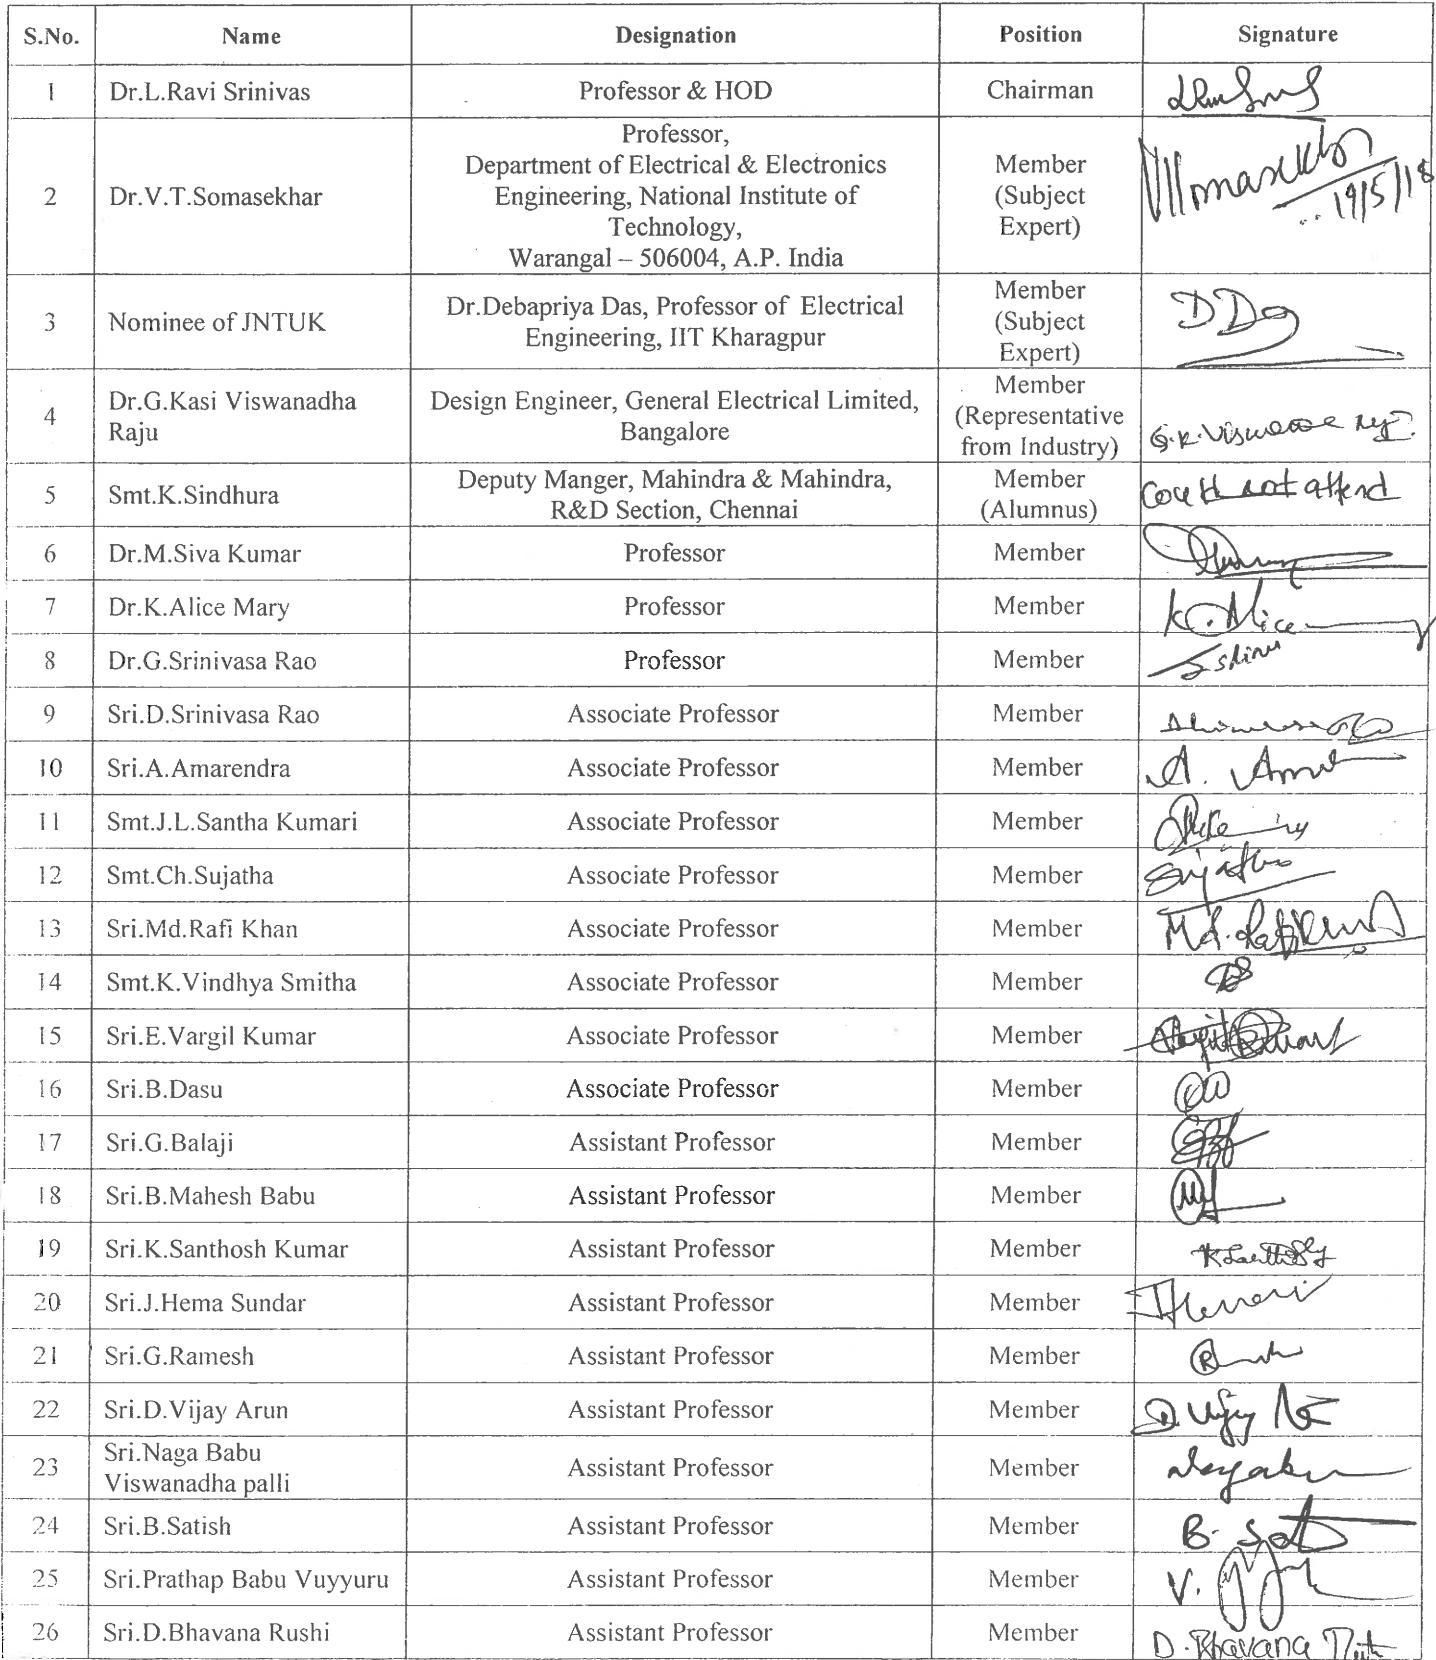 S.No. Name Designation Position Signature
1 Dr.L.Ravi Srinivas Professor & HOD Chairman
2 Dr.V.T.Somasekhar Professor,
Department of Electrical & Electronics
Engineering, National Institute of
Technology,
Warangal – 506004, A.P. India
Member
(Subject
Expert)
19/5/18
3 Nominee of JNTUK Dr.Debapriya Das, Professor of Electrical
Engineering, IIT Kharagpur
Member
(Subject
Expert)
4 Dr.G.Kasi Viswanadha
Raju
Design Engineer, General Electrical Limited,
Bangalore
Member
(Representative
from Industry)
5 Smt.K.Sindhura Deputy Manger, Mahindra & Mahindra,
R&D Section, Chennai
Member
(Alumnus)
could not attend
6 Dr.M.Siva Kumar Professor Member
7 Dr.K.Alice Mary Professor Member K. Alice
8 Dr.G.Srinivasa Rao Professor Member
9 Sri.D.Srinivasa Rao Associate Professor Member
10 Sri.A.Amarendra Associate Professor Member
11 Smt.J.L.Santha Kumari Associate Professor Member
12 Smt.Ch.Sujatha Associate Professor Member Sujatha
13 Sri.Md.Rafi Khan Associate Professor Member
14 Smt.K.Vindhya Smitha Associate Professor Member
15 Sri.E.Vargil Kumar Associate Professor Member
16 Sri.B.Dasu Associate Professor Member
17 Sri.G.Balaji Assistant Professor Member
18 Sri.B.Mahesh Babu Assistant Professor Member
19 Sri.K.Santhosh Kumar Assistant Professor Member
20 Sri.J.Hema Sundar Assistant Professor Member
21 Sri.G.Ramesh Assistant Professor Member
22 Sri.D.Vijay Arun Assistant Professor Member D. Vijay
23 Sri.Naga Babu
Viswanadha palli
Assistant Professor Member
24 Sri.B.Satish Assistant Professor Member B.
25 Sri.Prathap Babu Vuyyuru Assistant Professor Member V.
26 Sri.D.Bhavana Rushi Assistant Professor Member D. Bhavana